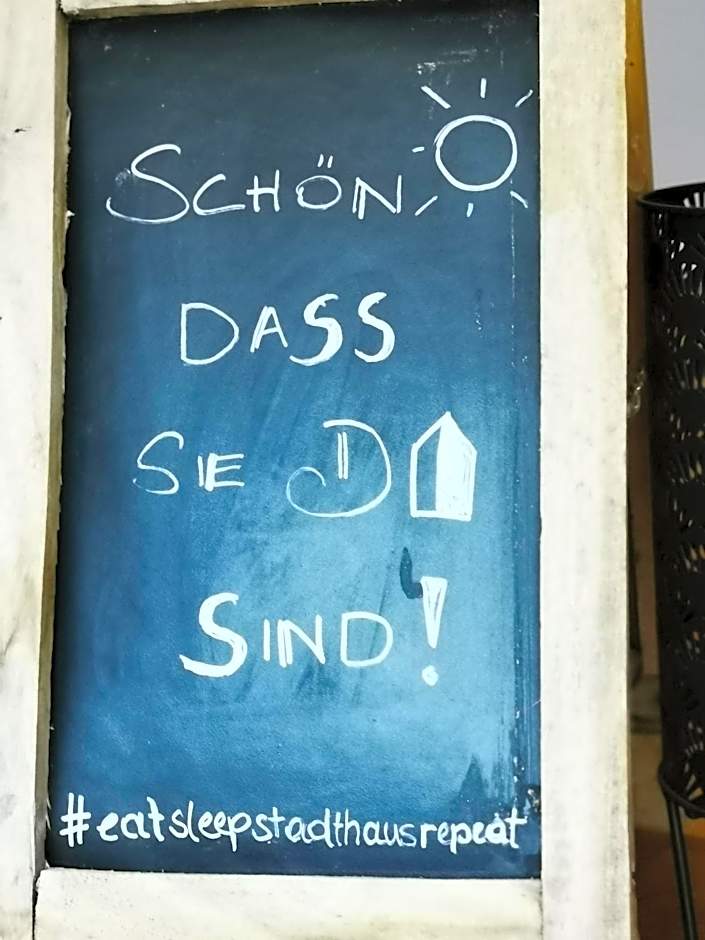 SCHÖN,
DASS
SIE D
SIND!
#eatsleepstadthausrepeat